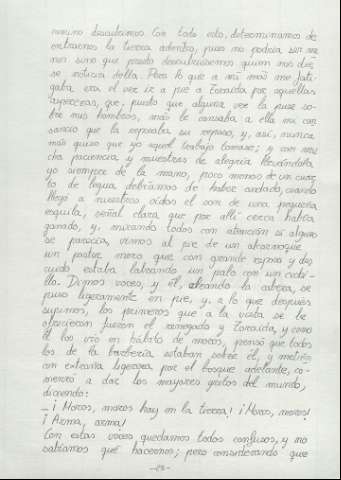 ninguno descubríamos. Con todo esto, determinamos de
entrarnos la tierra adentro, pues no podría ser me
nos sino que presto descubriésemos quien nos die
se noticia della. Pero lo que a mí más me fati
gaba era el ver ir a pie a Zoraida por aquellas
asperezas, que, puesto que alguna vez la puse so
bre mis hombros, más le cansaba a ella mi can
sancio que la reposaba su reposo, y, así, nunca
más quiso que yo aquel trabajo tomase; y con mu
cha paciencia y muestras de alegría llevándola
yo siempre de la mano, poco menos de un cuar
to de legua debíamos de haber andado, cuando
llegó a nuestros oídos el son de una pequeña
esquila, señal clara que por allí cerca había
ganado, y, mirando todos con atención si alguno
se parecía, vimos al pie de un alcornoque
un pastor mozo que con grande reposo y des
cuido estaba labrando un palo con un cuchi-
llo. Dimos voces, y él, alzando la cabeza, se
puso ligeramente en pie, y, a lo que después
supimos, los primeros que a la vista se le
ofrecieron fueron el renegado y Zoraida, y como
él los vio en hábito de moros, pensó que todos
los de la Berbería estaban sobre él, y metiéndo
con estraña ligereza por el bosque adelante, co-
menzó a dar los mayores gritos del mundo,
diciendo:
_ ¡ Moros, moros hay en la tierra! ¡ Moros, moros!
¡ Arma, arma!
Con estas voces quedamos todos confusos, y no
sabíamos qué hacernos; pero considerando que